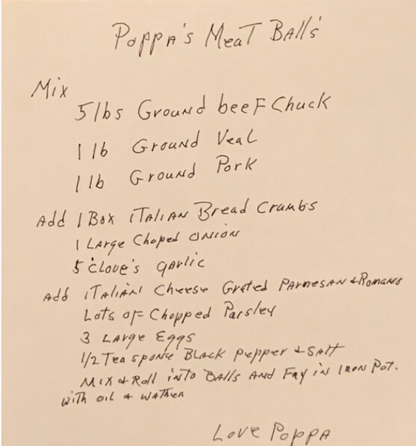 Poppa's Meat Balls
Mix
5 lbs Ground beef Chuck
1 lb Ground Veal
1 lb Ground Pork
Add 1 Box ITALian Bread Crumbs
1 Large Choped onion
5 Clove's garlic
Add ITALian Cheese Grated Parmesan & Romano
Lots of Chopped Parsley
3 Large Eggs
1/2 Teaspone Black Pepper & Salt
Mix & Roll into Balls And Fry in Iron Pot.
with oil &
Love Poppa